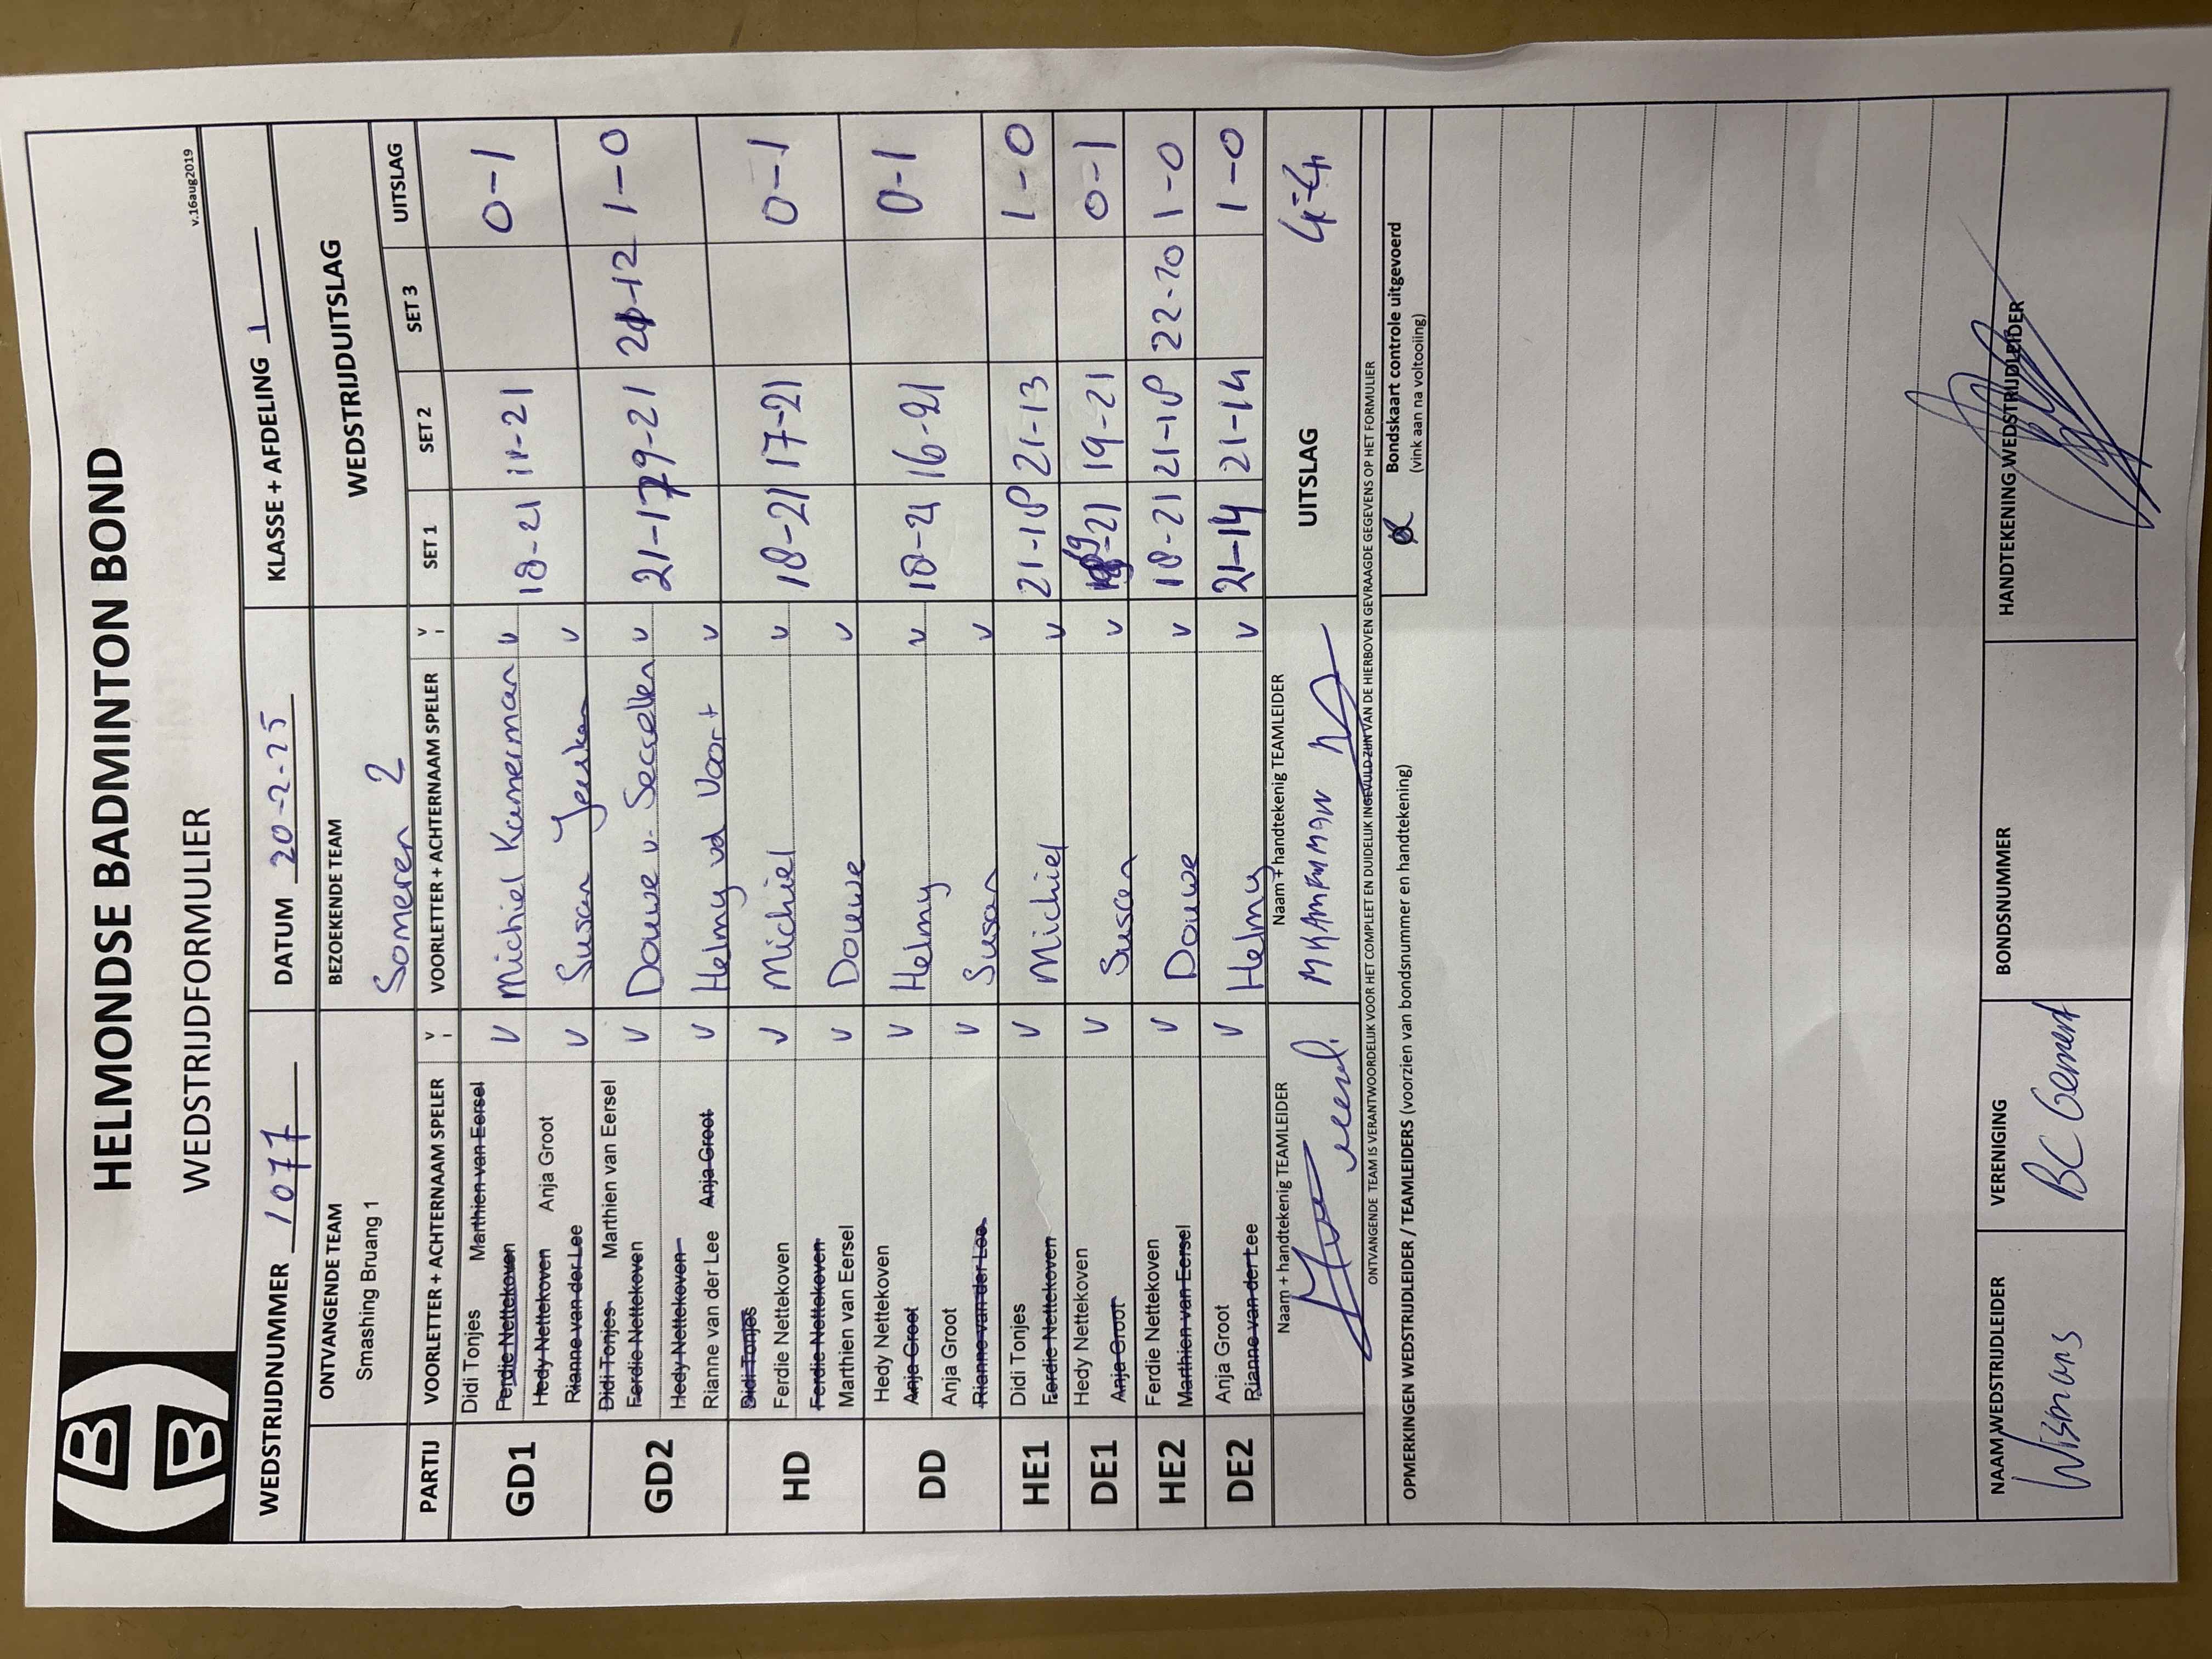 HELMONDSE BADMINTON BOND
WEDSTRIJDFORMULIER
v.16aug2019
WEDSTRIJDNUMMER 1077 DATUM 20-2-25 KLASSE + AFDELING 1
ONTVANGENDE TEAM BEZOEKENDE TEAM WEDSTRIJDUITSLAG
Smashing Bruang 1 Someren 2
PARTIJ VOORLETTER + ACHTERNAAM SPELER V VOORLETTER + ACHTERNAAM SPELER V SET 1 SET 2 SET 3 UITSLAG
GD1 Didi Tonjes Marthien van Eersel V Michiel Kamerman V 18-21 11-21 0-1
Ferdie Nettekoven
Hedy Nettekoven Anja Groot V Susan V
Rianne van der Lee
GD2 Didi Tonjes Marthien van Eersel V Douwe v. V 21-17 19-21 21-12 1-0
Ferdie Nettekoven
Hedy Nettekoven V Helmy vd Voort V
Rianne van der Lee Anja Groot
HD Didi Tonjes V Michiel V 18-21 17-21 0-1
Ferdie Nettekoven
Ferdie Nettekoven V Douwe V
Marthien van Eersel
DD Hedy Nettekoven V Helmy V 18-21 16-21 0-1
Anja Groot
Anja Groot V Susan V
Rianne van der Lee
HE1 Didi Tonjes V Michiel V 21-18 21-13 1-0
Ferdie Nettekoven
DE1 Hedy Nettekoven V Susan V 19-21 19-21 0-1
Anja Groot
HE2 Ferdie Nettekoven V Douwe V 18-21 21-18 22-20 1-0
Marthien van Eersel
DE2 Anja Groot V Helmy V 21-14 21-14 1-0
Rianne van der Lee
Naam + handtekenig TEAMLEIDER Naam + handtekenig TEAMLEIDER UITSLAG 4-4
M KAMERMAN
ONTVANGENDE TEAM IS VERANTWOORDELIJK VOOR HET COMPLEET EN DUIDELIJK INGEVULD ZIJN VAN DE HIERBOVEN GEVRAAGDE GEGEVENS OP HET FORMULIER
OPMERKINGEN WEDSTRIJDLEIDER / TEAMLEIDERS (voorzien van bondsnummer en handtekening)
Bondskaart controle uitgevoerd
(vink aan na voltooiing)
NAAM WEDSTRIJDLEIDER VERENIGING BONDSNUMMER HANDTEKENING WEDSTRIJDLEIDER
Wismans BC Gemert